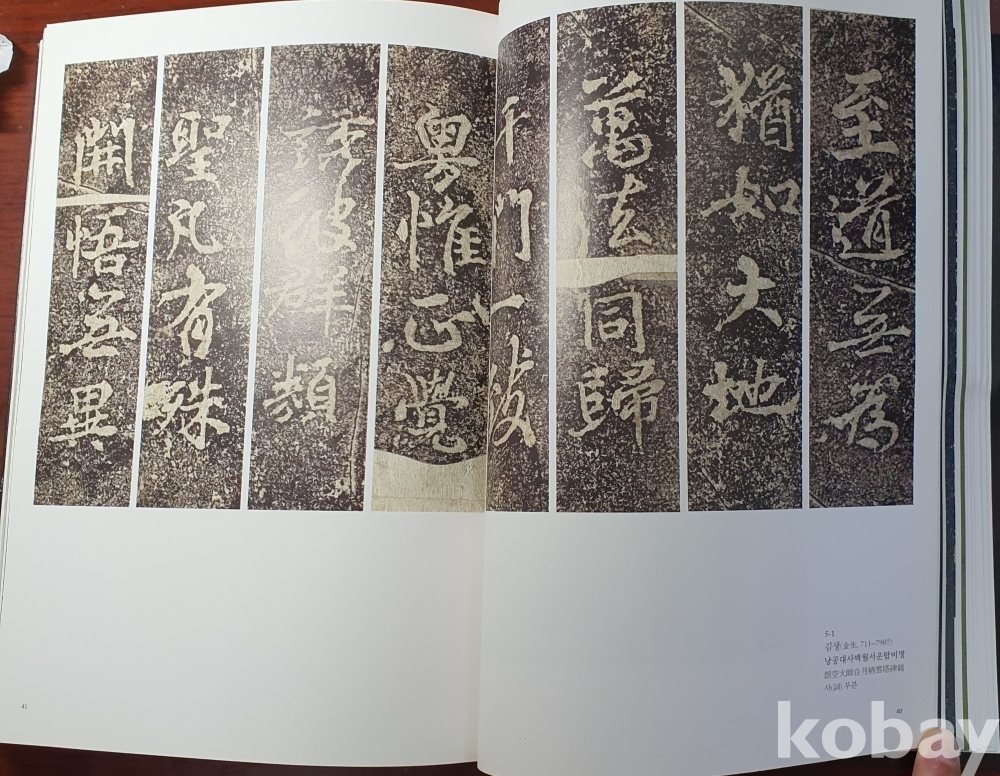 至道無爲
猶如大地
萬法同歸
千門一致
粤惟正覺
誘彼群類
聖凡有殊
開悟無異
5-1
김생(金生, 711~790?)
낭공대사백월서운탑비명
朗空大師白月栖雲塔碑銘
사(詞) 부분
40
41
kobay